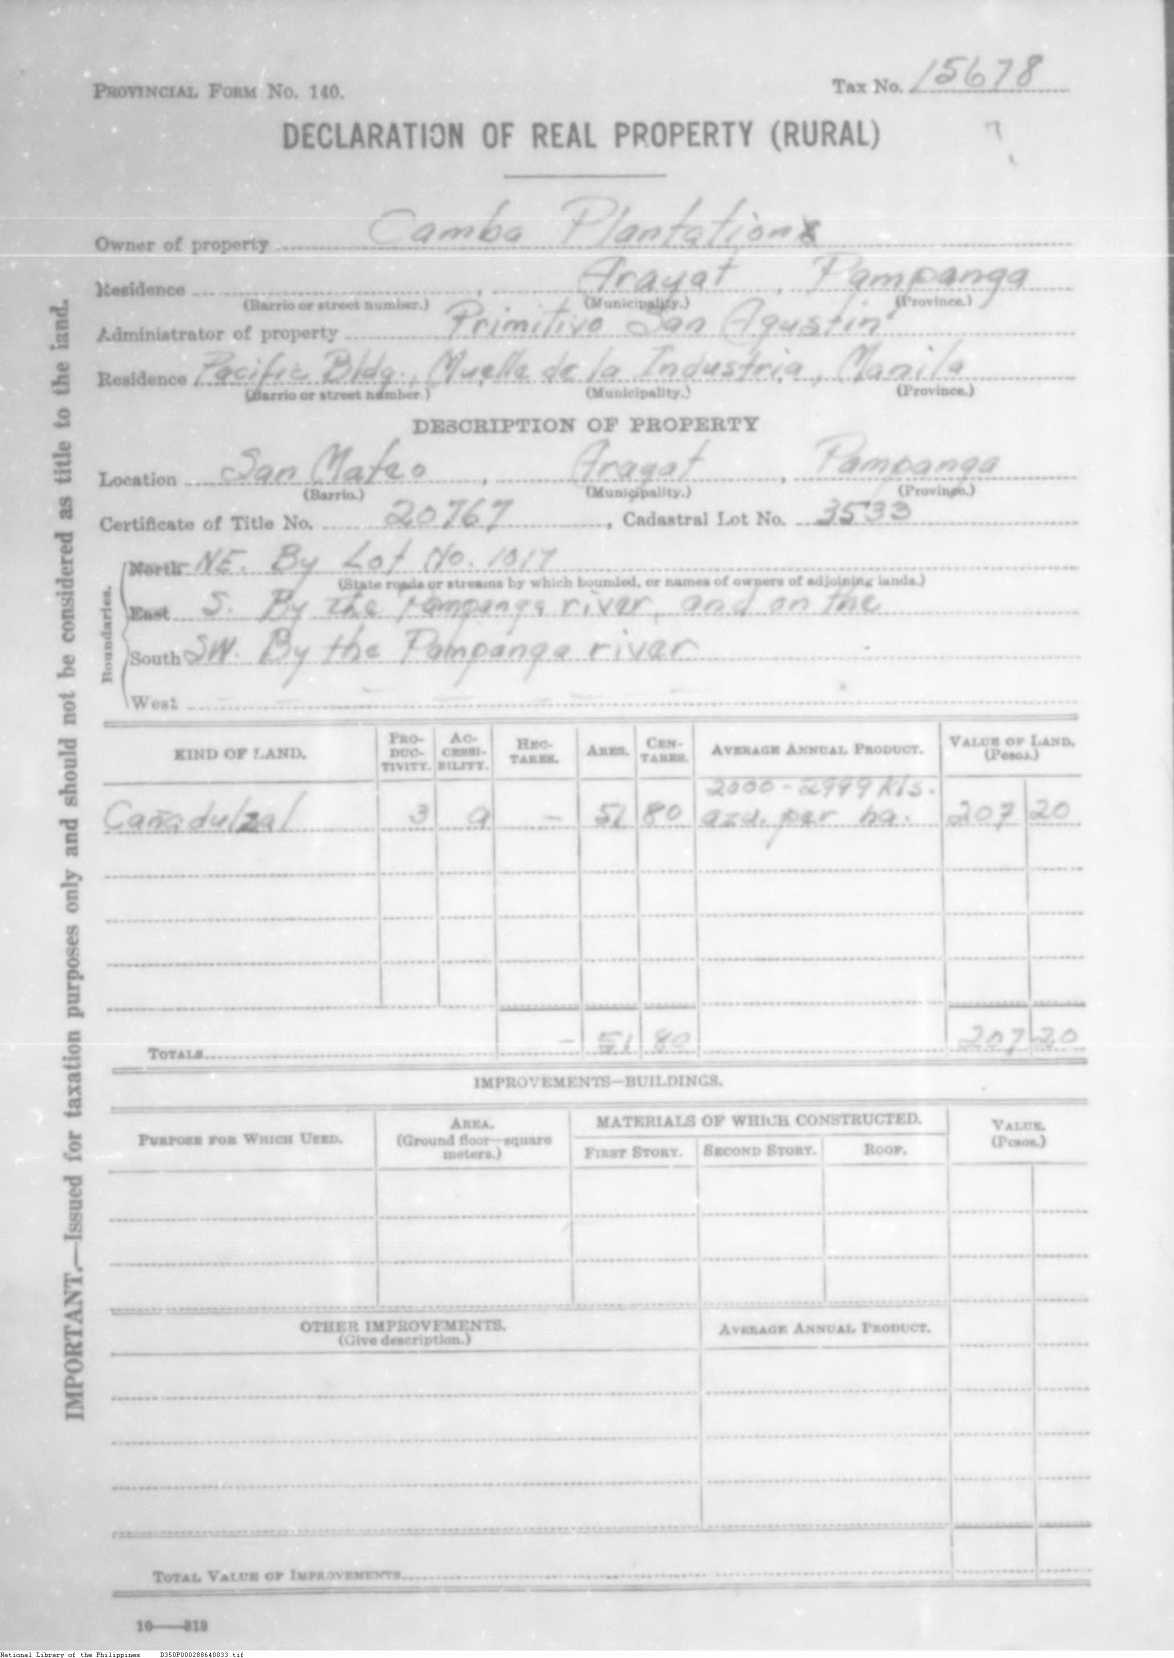 PROVINCIAL FORM NO. 140.
Tax No. 15678
DECLARATION OF REAL PROPERTY (RURAL)
Owner of property Camba Plantation
Residence , Arayat , Pampanga
(Barrio or street number.) (Municipality.) (Province.)
Administrator of property Primitivo San Agustin
Residence Pacific Bldg., Muelle de la Industria, Manila
(Barrio or street number.) (Municipality.) (Province.)
DESCRIPTION OF PROPERTY
Location San Mateo , Arayat , Pampanga
(Barrio.) (Municipality.) (Province.)
Certificate of Title No. 20767 , Cadastral Lot No. 3533
Boundaries.
North NE. By Lot No. 1017
(State roads or streams by which bounded, or names of owners of adjoining lands.)
East S. By the Pampanga river, and on the
South SW. By the Pampanga river
West
KIND OF LAND. PRODUCTIVITY. ACCESSIBILITY. HECTARES. ARES. CENTARES. AVERAGE ANNUAL PRODUCT. VALUE OF LAND. (Pesos.)
2000-2999 Kls.
Cañadulzal 3 a - 51 80 azu. per ha. 207 20
TOTALS - 51 80 207 20
IMPROVEMENTS—BUILDINGS.
PURPOSE FOR WHICH USED. AREA. (Ground floor—square meters.) MATERIALS OF WHICH CONSTRUCTED. VALUE. (Pesos.)
FIRST STORY. SECOND STORY. ROOF.
OTHER IMPROVEMENTS. (Give description.) AVERAGE ANNUAL PRODUCT.
TOTAL VALUE OF IMPROVEMENTS
10——818
IMPORTANT.—Issued for taxation purposes only and should not be considered as title to the land.
National Library of the Philippines D350P000288640033.tif